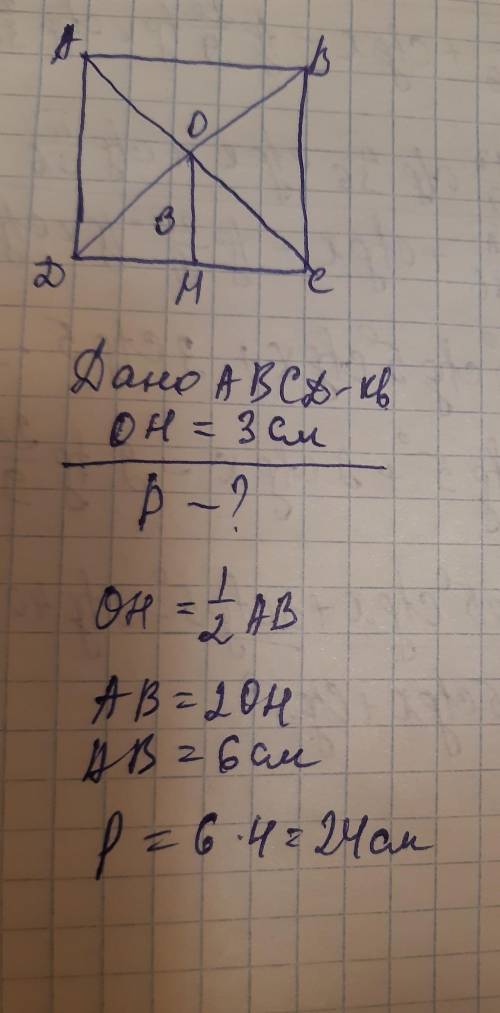 A B
O
3
D H C
Дано ABCD-кв
OH = 3 см
P - ?
OH = 1/2 AB
AB = 2OH
AB = 6 см
P = 6 · 4 = 24 см